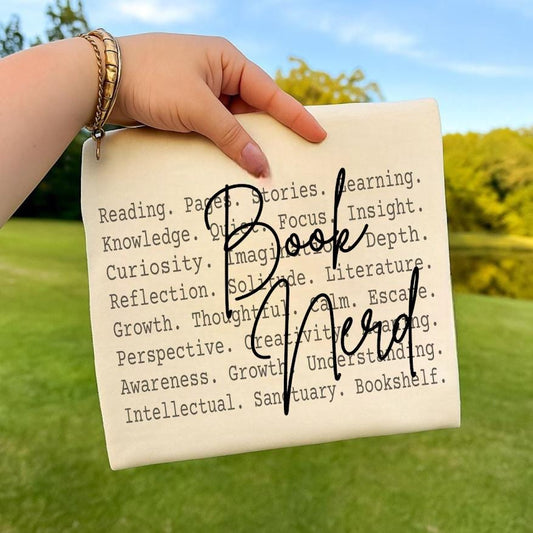 Reading. Pages. Stories. Learning.
Knowledge. Quiet. Focus. Insight.
Curiosity. Imagination. Depth.
Reflection. Solitude. Literature.
Growth. Thoughtful. Calm. Escape.
Perspective. Creativity.
Awareness. Growth. Understanding.
Intellectual. Sanctuary. Bookshelf.
Book
Nerd